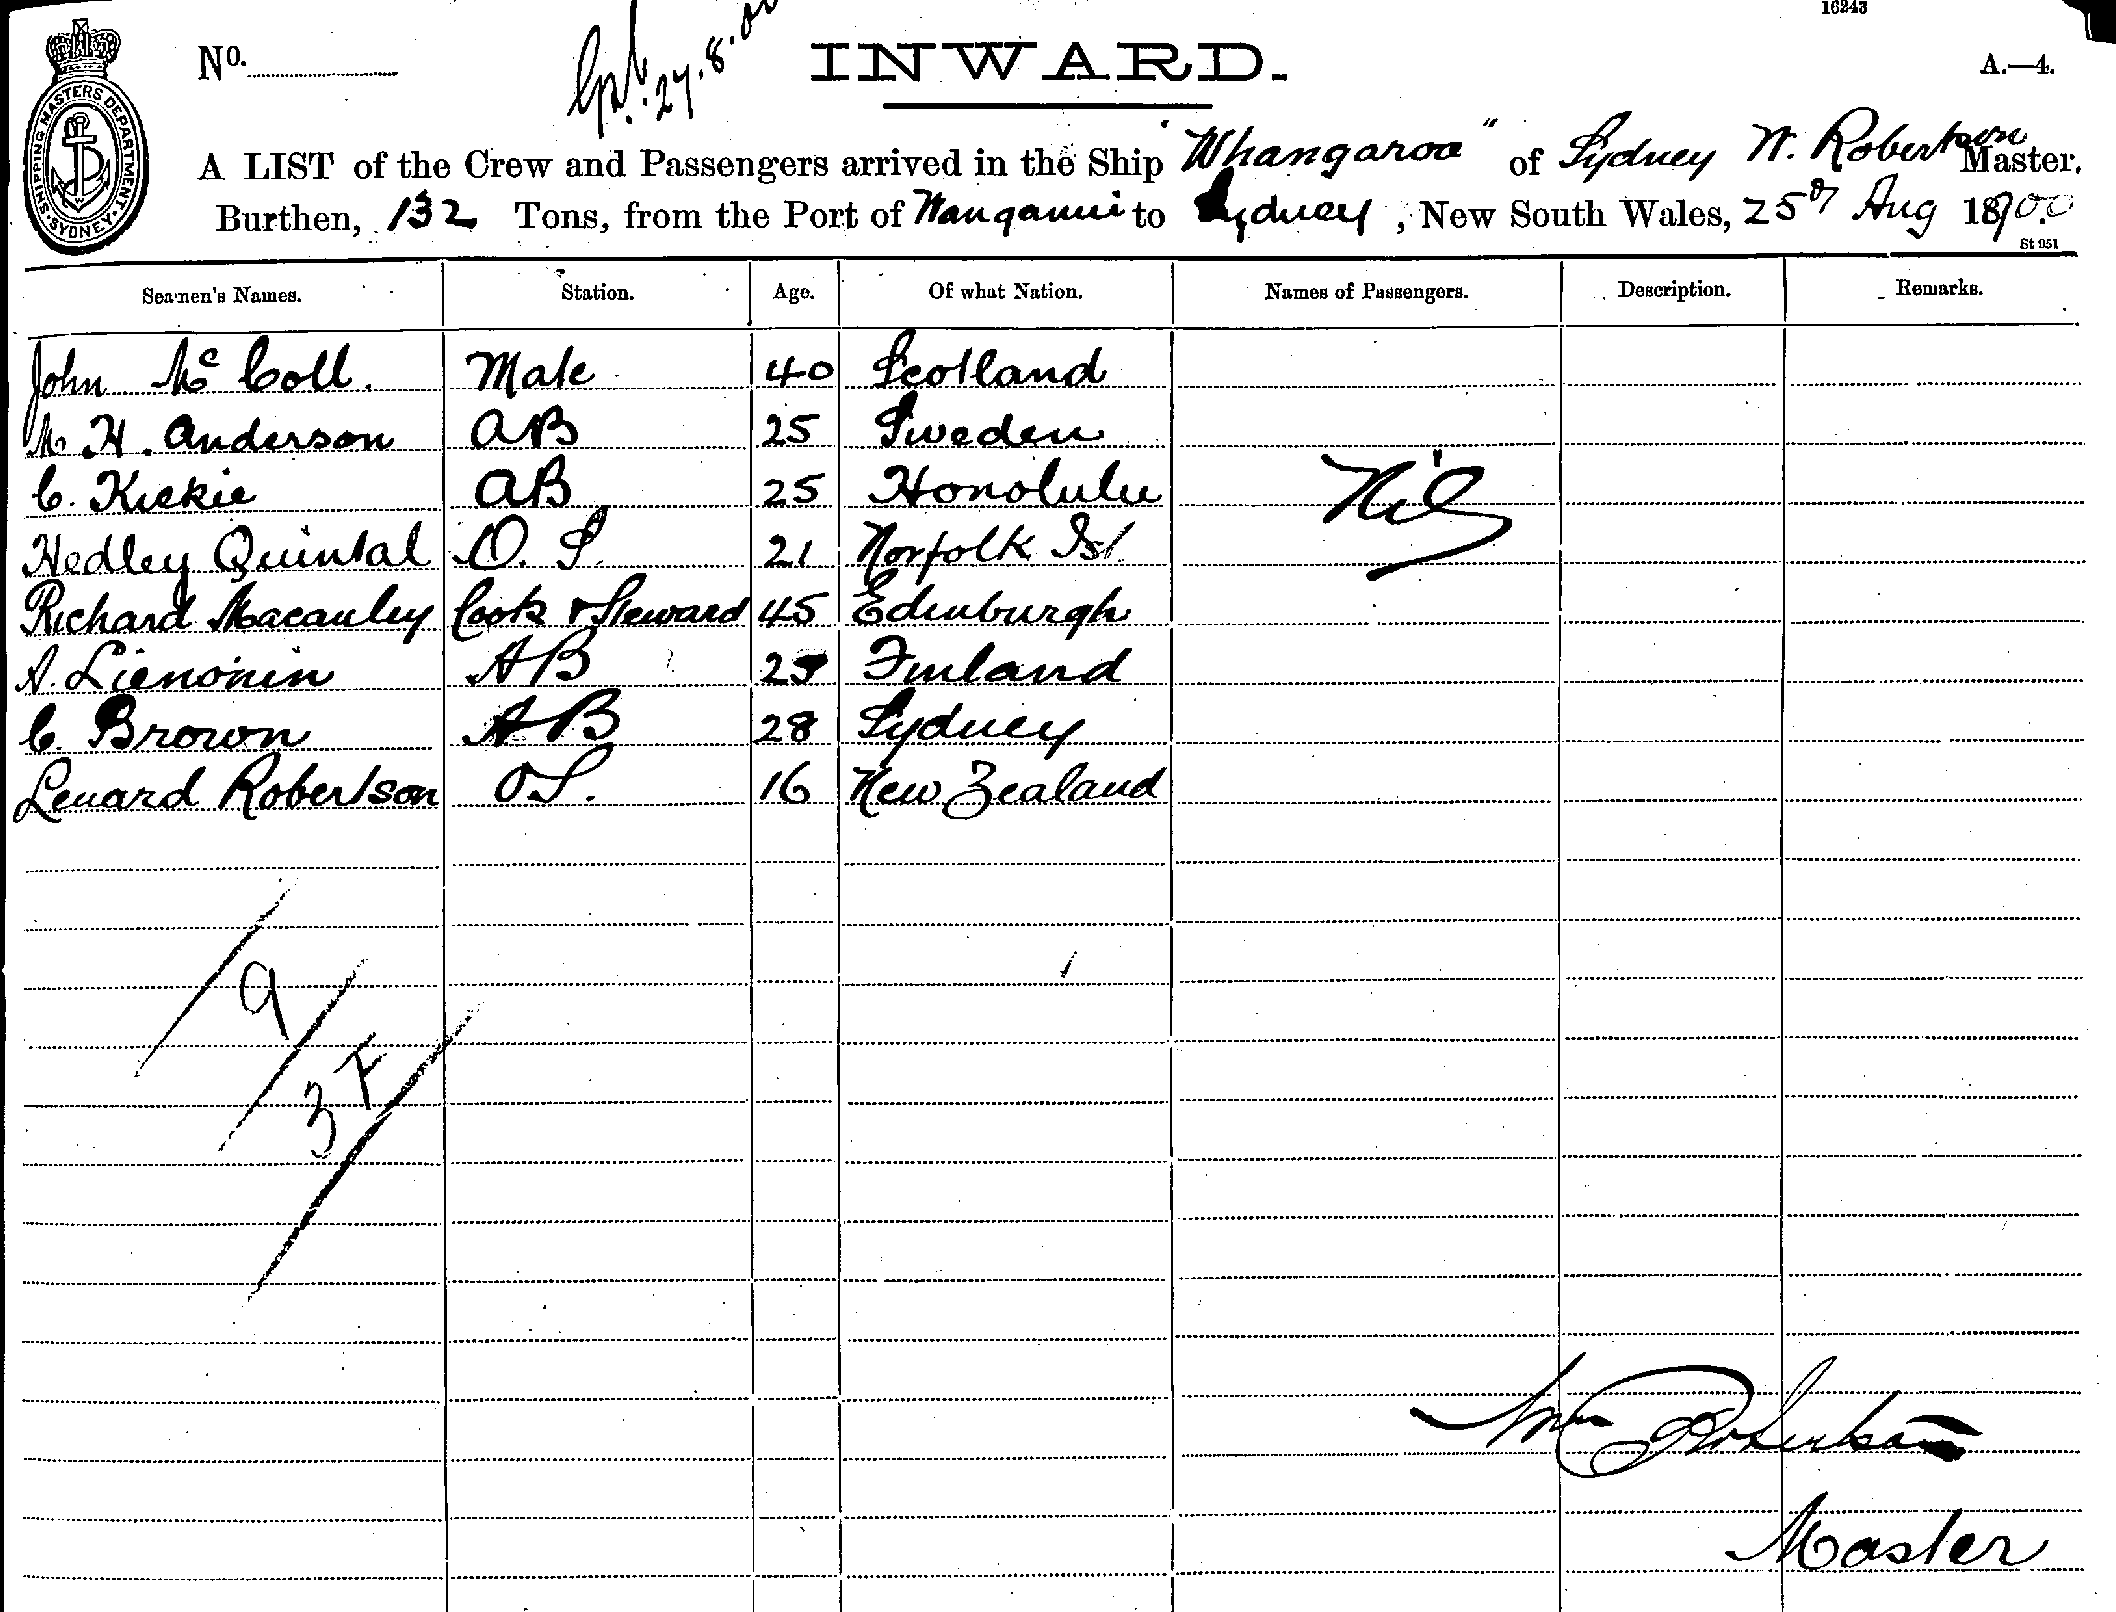 16243
No.
27.8.00
INWARD.
A.—4.
SHIPPING MASTERS DEPARTMENT. SYDNEY.
A LIST of the Crew and Passengers arrived in the Ship "Whangaroa" of Sydney W. Robertson Master,
Burthen, 132 Tons, from the Port of Wanganui to Sydney, New South Wales, 25th Aug 1900
St 951
Seamen's Names. Station. Age. Of what Nation. Names of Passengers. Description. Remarks.
John Mc Coll. Mate 40 Scotland
H. Anderson AB 25 Sweden
C. Kiekie AB 25 Honolulu Nil
Hedley Quintal O. S. 21 Norfolk Isl
Richard Macauley Cook & Steward 45 Edinburgh
A. Lienonin AB Finland
C. Brown AB 28 Sydney
Lenard Robertson OS. 16 New Zealand
9
3 F
Wm Robertson
Master